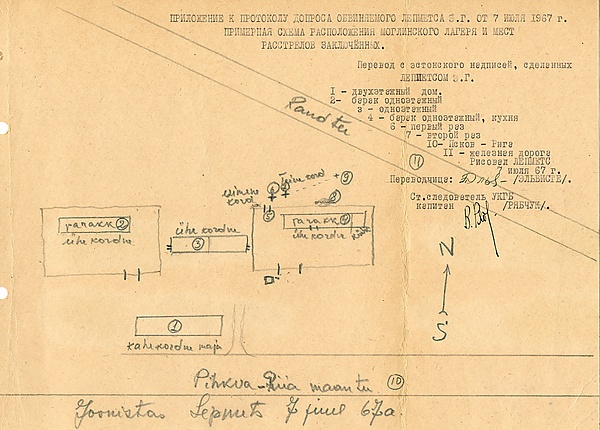 ПРИЛОЖЕНИЕ К ПРОТОКОЛУ ДОПРОСА ОБВИНЯЕМОГО ЛЕПМЕТСА Э.Г. ОТ 7 ИЮЛЯ 1967 г.
ПРИМЕРНАЯ СХЕМА РАСПОЛОЖЕНИЯ МОГЛИНСКОГО ЛАГЕРЯ И МЕСТ
РАССТРЕЛОВ ЗАКЛЮЧЁННЫХ.
Перевод с эстонского надписей, сделанных
ЛЕПМЕТСОМ Э.Г.
I - двухэтажный дом.
2- барак одноэтажный
3 - одноэтажный
4 - барак одноэтажный, кухня
6 - первый раз
7 - второй раз
10- Псков - Рига
II - железная дорога
Рисовал ЛЕПМЕТС
7 июля 67 г.
Переводчица: /ЭЛЬВИСТЕ/.
Ст.следователь УКГБ
капитан /РЯБЧУК/.
Raudtee
11
teine kord
9
esimene
kord
5
barakk 2
ühe kordne
ühe kordne
3
barakk 4
ühe kordne
köök
N
S
1
kahe kordne maja
Pihkva-Riia maantee 10
Joonistas Lepmets 7 juul 67a.